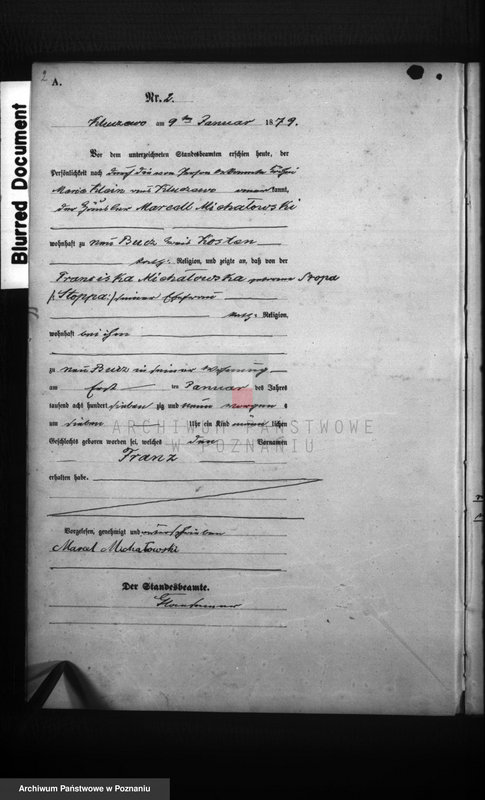 2
A.
Nr. 2.
am 9ten Januar 1879.
Vor dem unterzeichneten Standesbeamten erschien heute, der
Persönlichkeit nach durch die von Person
kannt,
der Häusler Marcell Michałowski
wohnhaft zu neu Bucz Kreis Kosten
kath: Religion, und zeigte an, daß von der
Franciska Michałowska geborene Stopa
/: Stoppa :/ seiner Ehefrau
kath: Religion,
wohnhaft bei ihm
zu neu Bucz in seiner Wohnung
am erst ten Januar des Jahres
tausend acht hundert sieben zig und neun morgens
um sieben Uhr ein Kind männlichen
Geschlechts geboren worden sei, welches den Vornamen
Franz
erhalten habe.
Vorgelesen, genehmigt und unterschrieben
Marcel Michałowski
Der Standesbeamte.
Blurred Document
ARCHIWUM PAŃSTWOWE
W POZNANIU
Archiwum Państwowe w Poznaniu